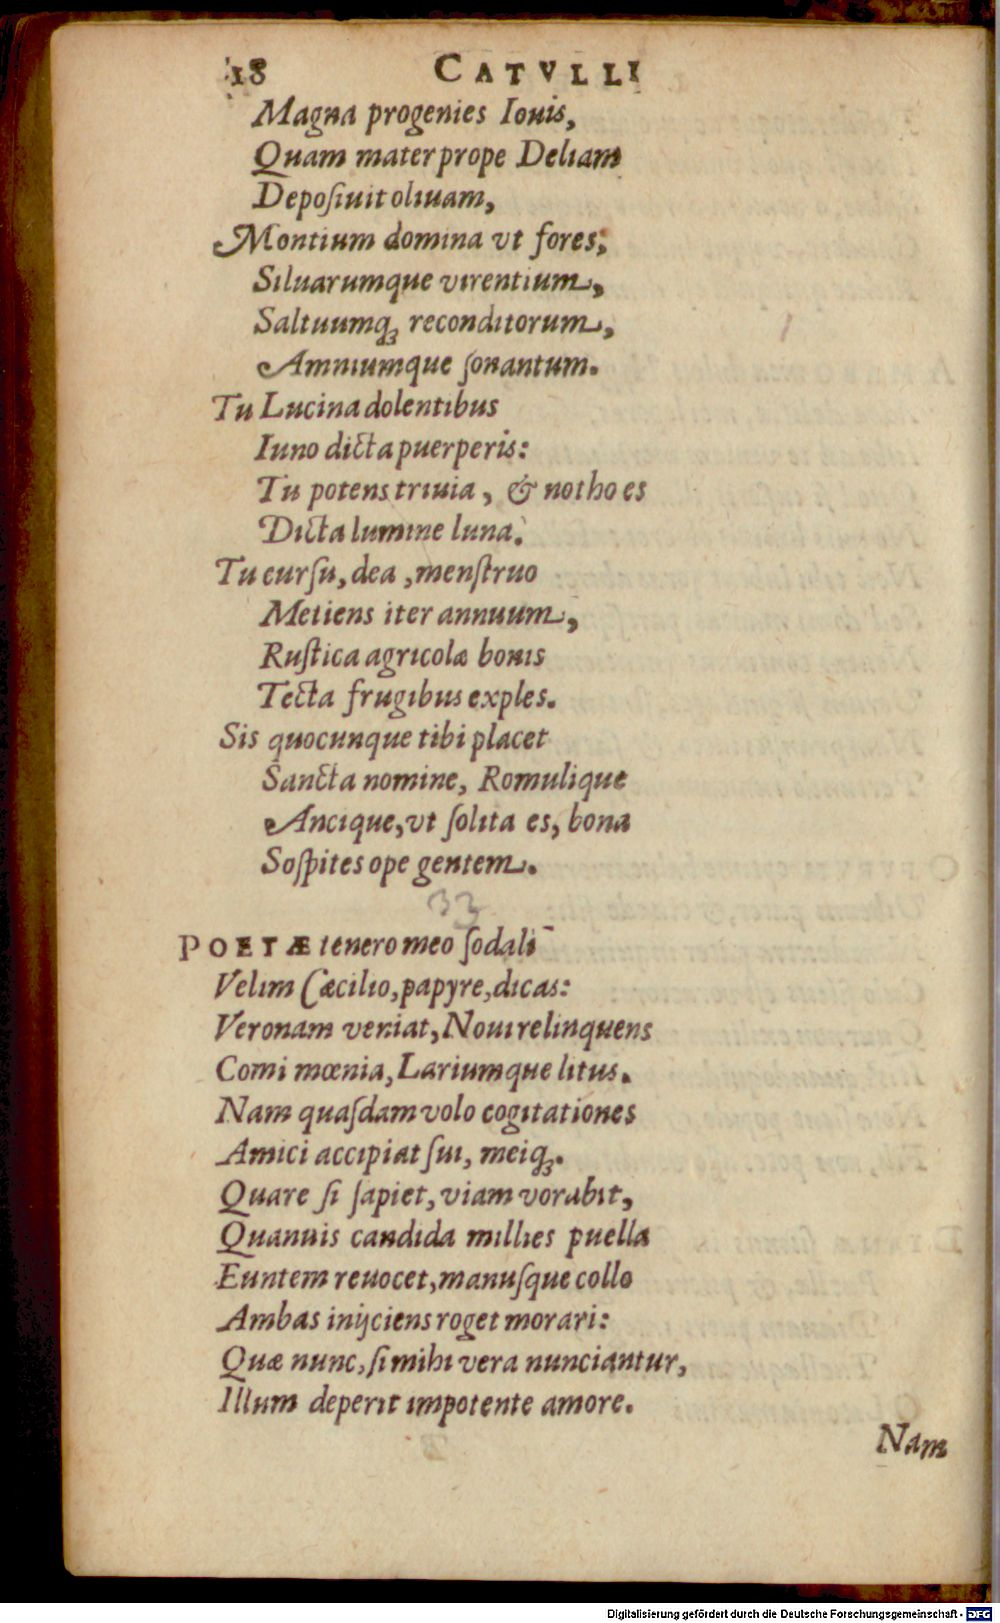 18 CATVLLI
Magna progenies Iouis,
Quam mater prope Deliam
Depoſiuit oliuam,
Montium domina vt fores,
Siluarumque virentium,
Saltuumq́; reconditorum,
Amniumque ſonantum.
Tu Lucina dolentibus
Iuno dicta puerperis:
Tu potens triuia, & notho es
Dicta lumine luna.
Tu curſu, dea, menſtruo
Metiens iter annuum,
Ruſtica agricolæ bonis
Tecta frugibus exples.
Sis quocunque tibi placet
Sancta nomine, Romulique
Ancique, vt ſolita es, bona
Soſpites ope gentem.
33
POETÆ tenero meo ſodali
Velim Cæcilio, papyre, dicas:
Veronam veniat, Noui relinquens
Comi mœnia, Lariumque litus.
Nam quaſdam volo cogitationes
Amici accipiat ſui, meiq;.
Quare ſi ſapiet, viam vorabit,
Quanuis candida millies puella
Euntem reuocet, manuſque collo
Ambas inijciens roget morari:
Quæ nunc, ſi mihi vera nunciantur,
Illum deperit impotente amore.
Nam
Digitalisierung gefördert durch die Deutsche Forschungsgemeinschaft - DFG